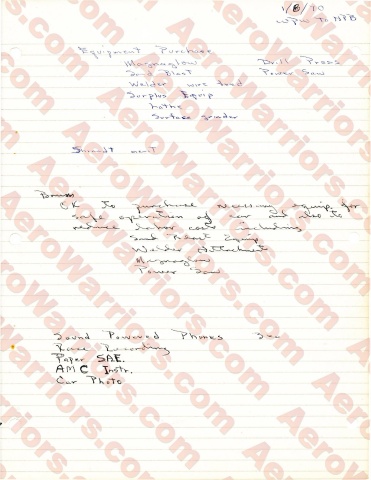 1/8/70
WPW To BPB
Equipment Purchase
Magnaglow Drill Press
Sand Blast Power Saw
Welder wire feed
Surplus Equip
Lathe
Surface grinder
merit
OK to purchase necessary equip. for
safe operation of car and also to
reduce labor costs including
Sand Blast Equip
Welder Attachment
Magnaglow
Power Saw
Sound Powered Phones
Race Recording
Paper SAE.
AMC Instr.
Car Photo
AeroWarriors.com